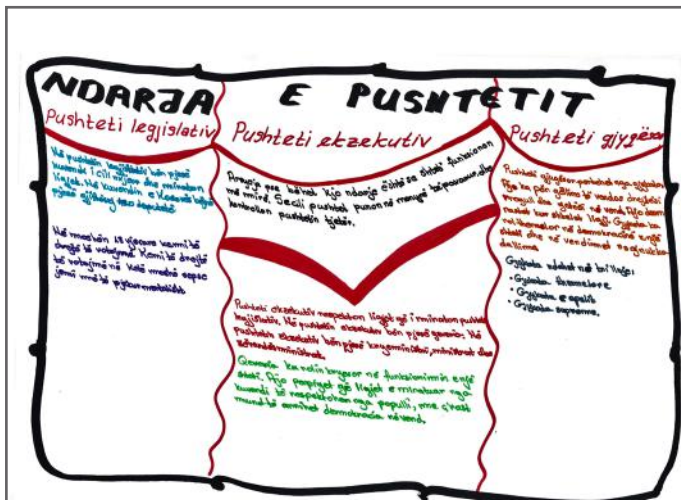 NDARJA E PUSHTETIT
Pushteti legjislativ
Në pushtetin legjislativ bën pjesë
kuvendi i cili krijon dhe miraton
ligjet. Në kuvendin e Kosovës bëjnë
pjesë gjithsej 120 deputetë
Në moshën 18 vjeçare kemi të
drejtë të votojmë. Kemi të drejtë
të votojmë në këtë moshë sepse
jemi më të pjekur mendërisht
Pushteti ekzekutiv
Arsyeja pse bëhet kjo ndarje është se shteti funksionon
më mirë. Secili pushtet punon në mënyrë të pavarur dhe
kontrollon pushtetin tjetër.
Pushteti ekzekutiv respekton ligjet që i miraton pushteti
legjislativ. Në pushtetin ekzekutiv bën pjesë qeveria. Në
pushtetin ekzekutiv bëjnë pjesë kryeministri, ministrat dhe
zëvendësministrat.
Qeveria ka rolin kryesor në funksionimin e një
shteti. Ajo përpiqet që ligjet e miratuar nga
kuvendi të respektohen nga populli, me çka
mund të arrihet demokracia në vend.
Pushteti gjyqësor
Pushteti gjyqësor përbëhet nga gjykatat.
Ajo ka për qëllim të vendos drejtësi
rregull dhe qetësi në vend. Ajo
rastet kur shkelet ligji. Gjykata ka
rol themelor në demokracinë e një
shteti dhe në vendimet pa
dallime.
Gjykata ndahet në tri lloje:
• Gjykata themelore
• Gjykata e apelit
• Gjykata supreme.